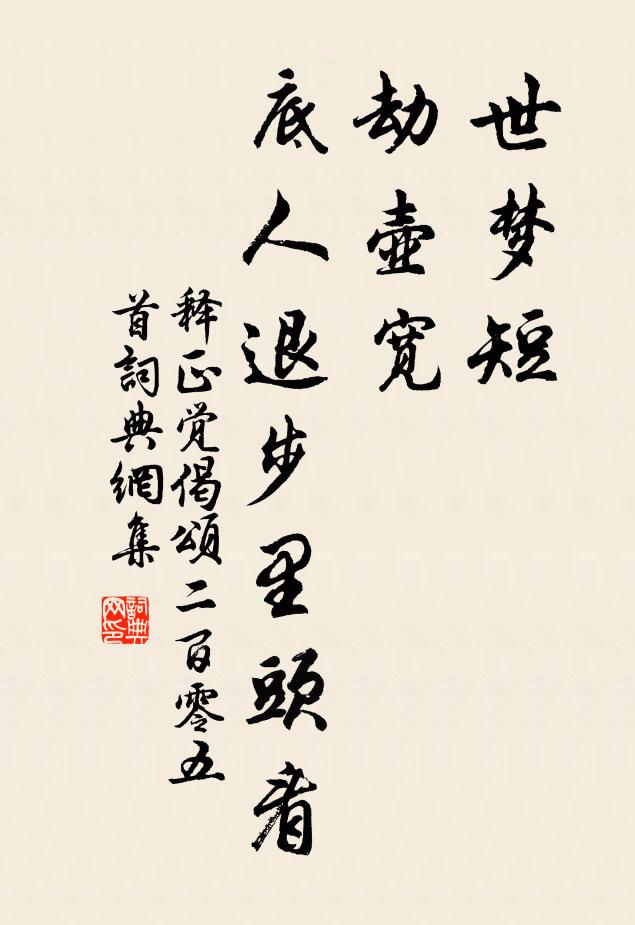 世梦短
劫壺寬
底人退步里頭看
释正觉偈頌二百零五
首詞典網集
詞典
网印